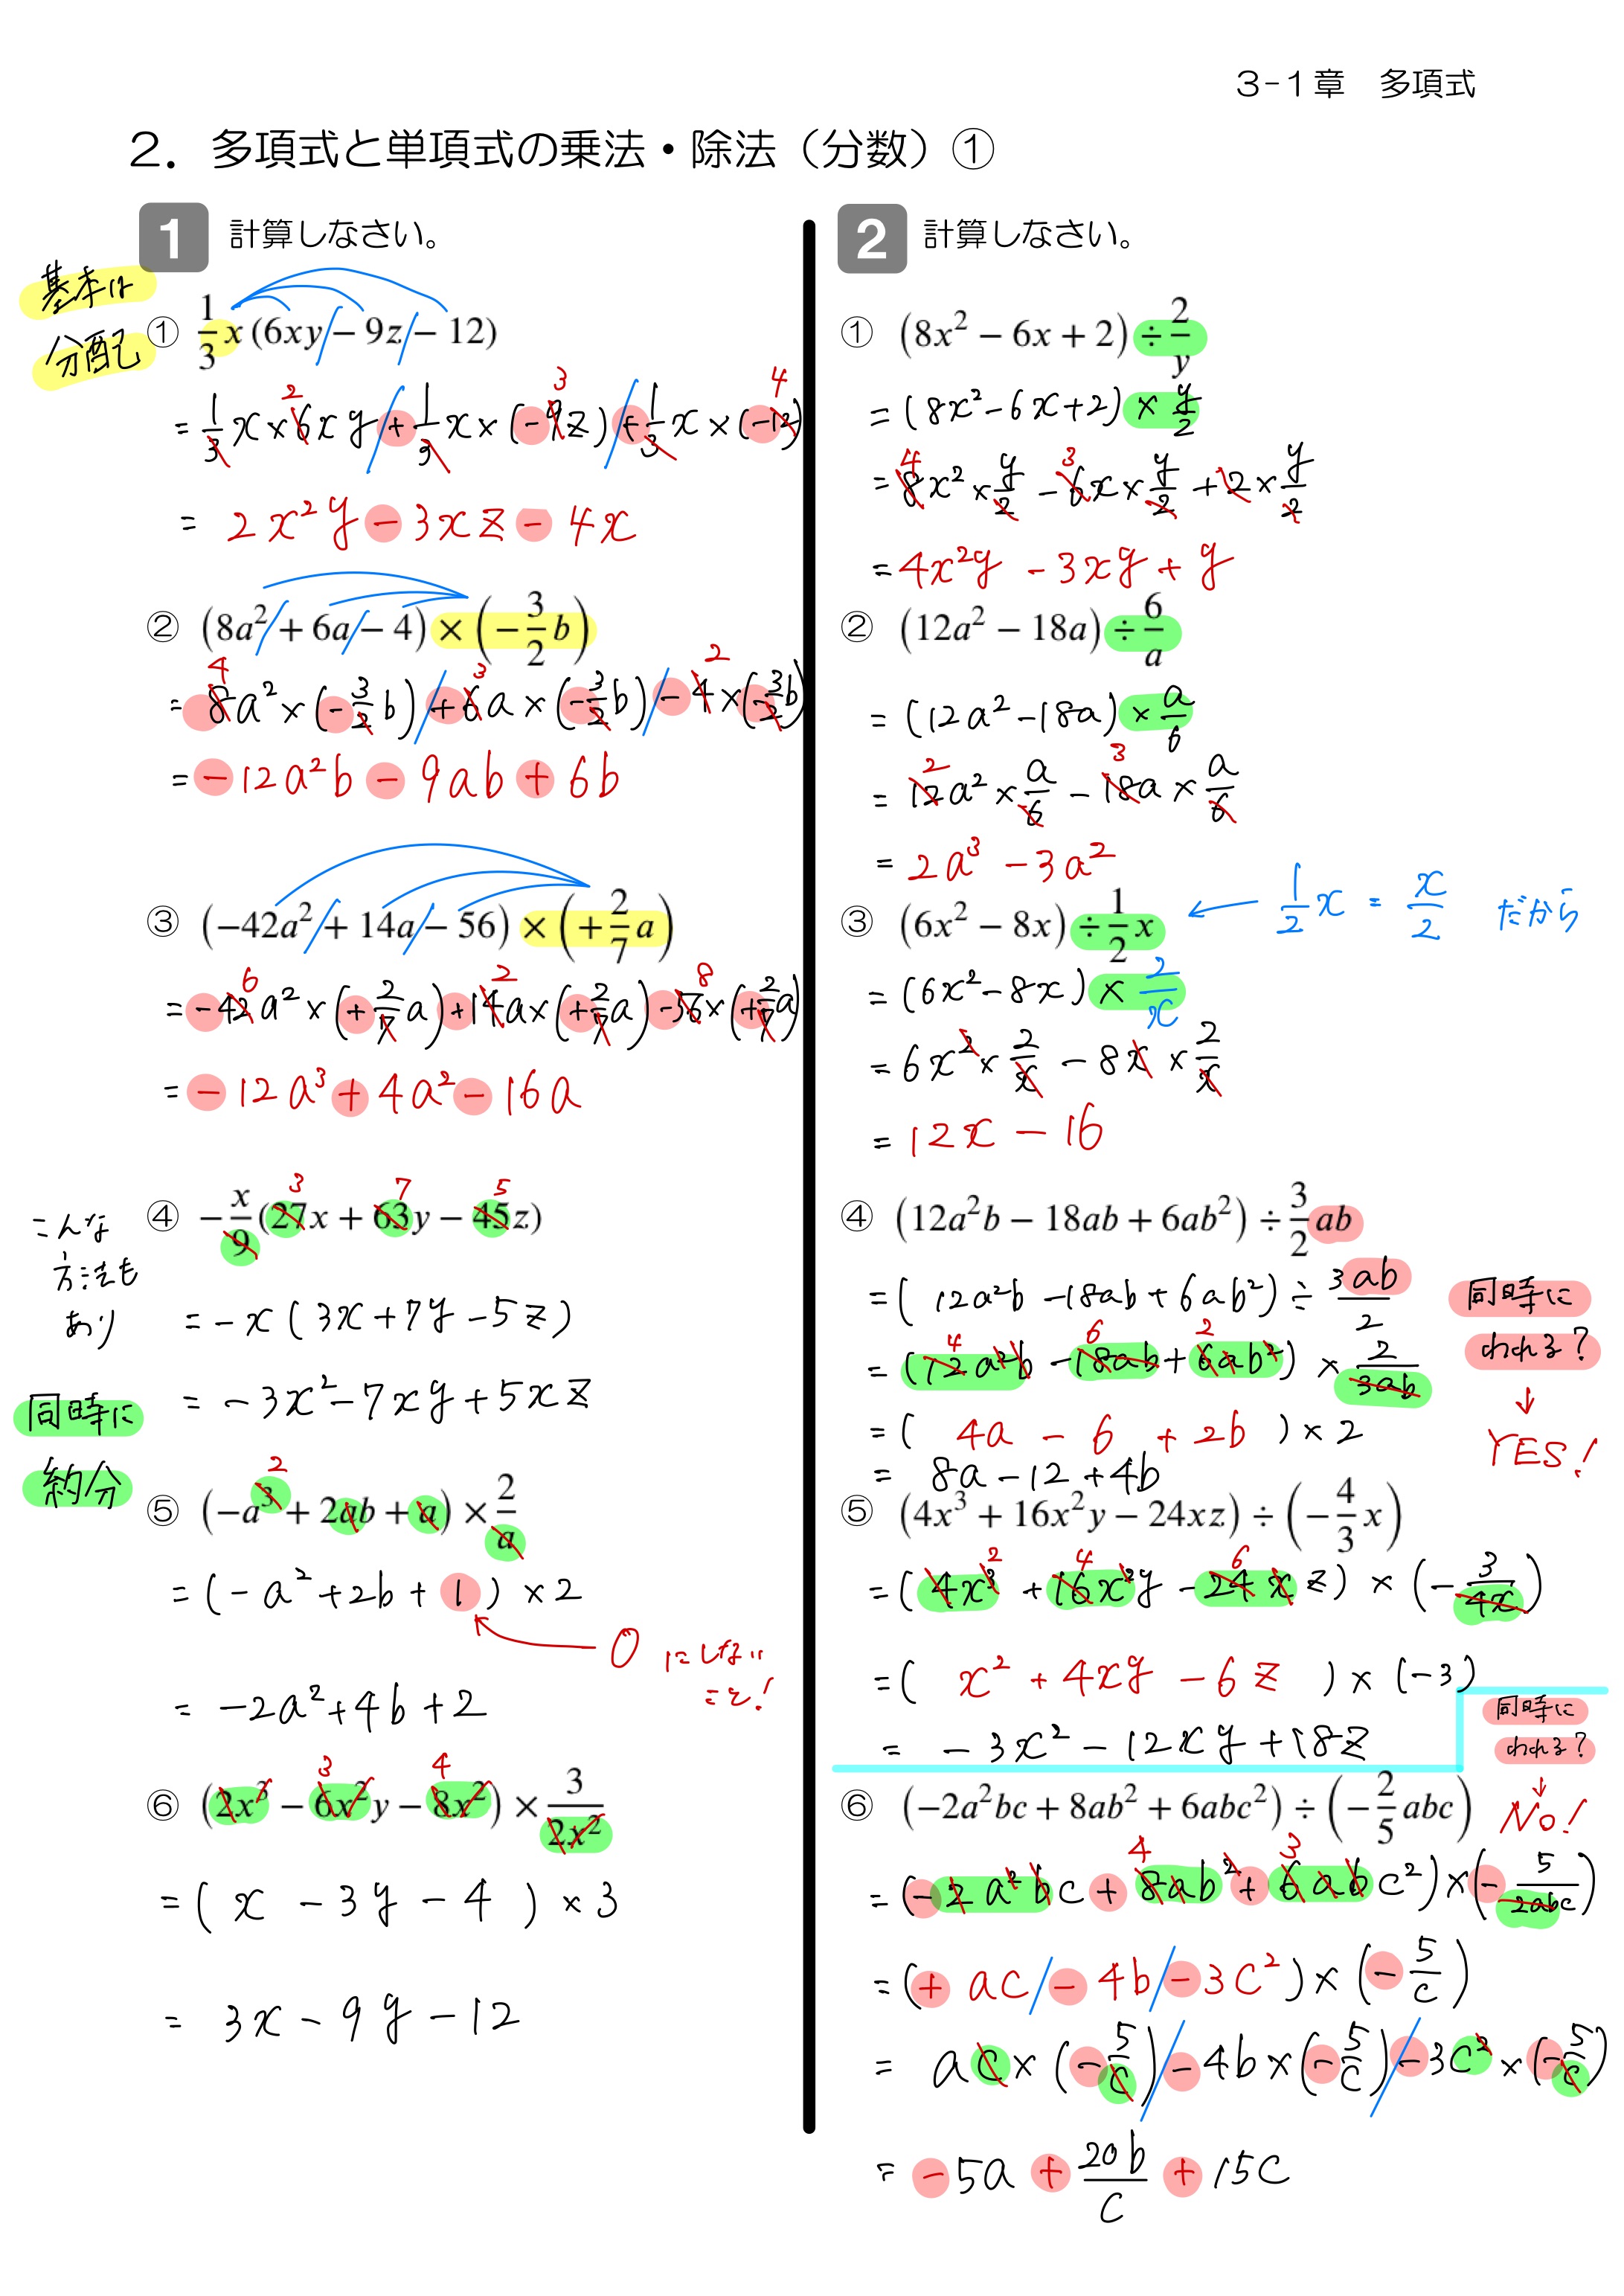 3-1章　多項式
2．多項式と単項式の乗法・除法（分数）①
1 計算しなさい。
基本は
分配
① 1/3 x(6xy − 9z − 12)
= 1/3 x × 6xy + 1/3 x × (−9z) + 1/3 x × (−12)
2 3 4
= 2x²y − 3xz − 4x
② (8a² + 6a − 4) × (−3/2 b)
4 3 2
= 8a² × (−3/2 b) + 6a × (−3/2 b) − 4 × (−3/2 b)
= −12a²b − 9ab + 6b
③ (−42a² + 14a − 56) × (+2/7 a)
6 2 8
= −42a² × (+2/7 a) + 14a × (+2/7 a) − 56 × (+2/7 a)
= −12a³ + 4a² − 16a
こんな
方法も
あり
3 7 5
④ −x/9 (27x + 63y − 45z)
= −x(3x + 7y − 5z)
= −3x² − 7xy + 5xz
同時に
約分
2
⑤ (−a³ + 2ab + a) × 2/a
= (−a² + 2b + 1) × 2
0 にしない
こと！
= −2a² + 4b + 2
3 4
⑥ (2x³ − 6x²y − 8x²) × 3/2x²
= (x − 3y − 4) × 3
= 3x − 9y − 12
2 計算しなさい。
① (8x² − 6x + 2) ÷ 2/y
= (8x² − 6x + 2) × y/2
4 3
= 8x² × y/2 − 6x × y/2 + 2 × y/2
= 4x²y − 3xy + y
② (12a² − 18a) ÷ 6/a
= (12a² − 18a) × a/6
2 3
= 12a² × a/6 − 18a × a/6
= 2a³ − 3a²
③ (6x² − 8x) ÷ 1/2 x ← 1/2 x = x/2 だから
= (6x² − 8x) × 2/x
= 6x² × 2/x − 8x × 2/x
= 12x − 16
④ (12a²b − 18ab + 6ab²) ÷ 3/2 ab
= (12a²b − 18ab + 6ab²) ÷ 3ab/2
同時に
われる？
↓
YES!
4 6 2
= (12a²b − 18ab + 6ab²) × 2/3ab
= (4a − 6 + 2b) × 2
= 8a − 12 + 4b
⑤ (4x³ + 16x²y − 24xz) ÷ (−4/3 x)
2 4 6
= (4x³ + 16x²y − 24xz) × (−3/4x)
= (x² + 4xy − 6z) × (−3)
= −3x² − 12xy + 18z
同時に
われる？
↓
No!
⑥ (−2a²bc + 8ab² + 6abc²) ÷ (−2/5 abc)
4 3
= (−2a²bc + 8ab² + 6abc²) × (−5/2abc)
= (+ac − 4b − 3c²) × (−5/c)
= ac × (−5/c) − 4b × (−5/c) − 3c² × (−5/c)
= −5a + 20b/c + 15c